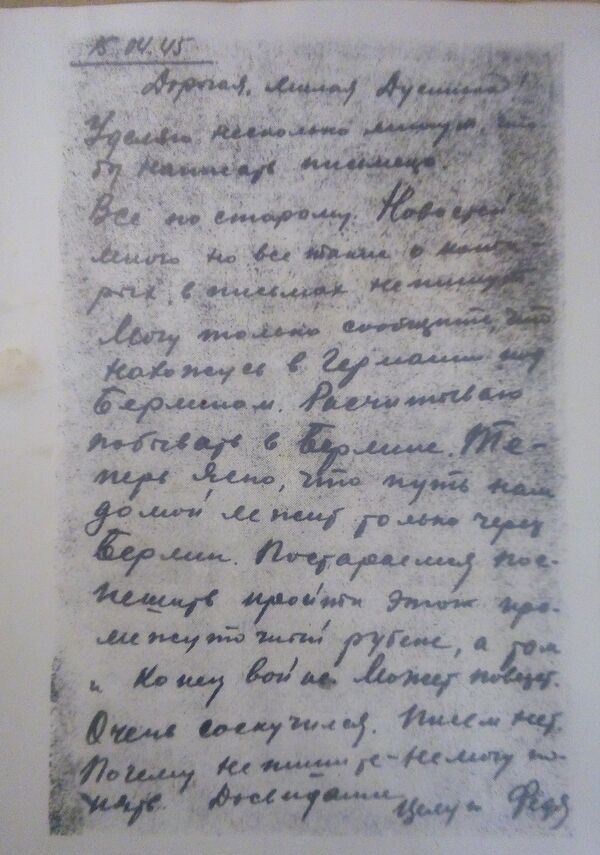 15.04.45
Дорогая, милая Дусинька!
Уделяю несколько минут, что
бы написать письмецо.
Все по старому. Новостей
много но все такие о кото-
рых в письмах не пишут.
Могу только сообщить, что
нахожусь в Германии под
Берлином. Расчитываю
побывать в Берлине. Те-
перь ясно, что путь нам
домой лежит только через
Берлин. Постараемся пос-
пешить пройти этот про-
межуточный рубеж, а там
и конец войне. Может повезет.
Очень соскучился. Писем нет.
Почему не пишите - не могу по-
нять. Досвидания Целую Федя